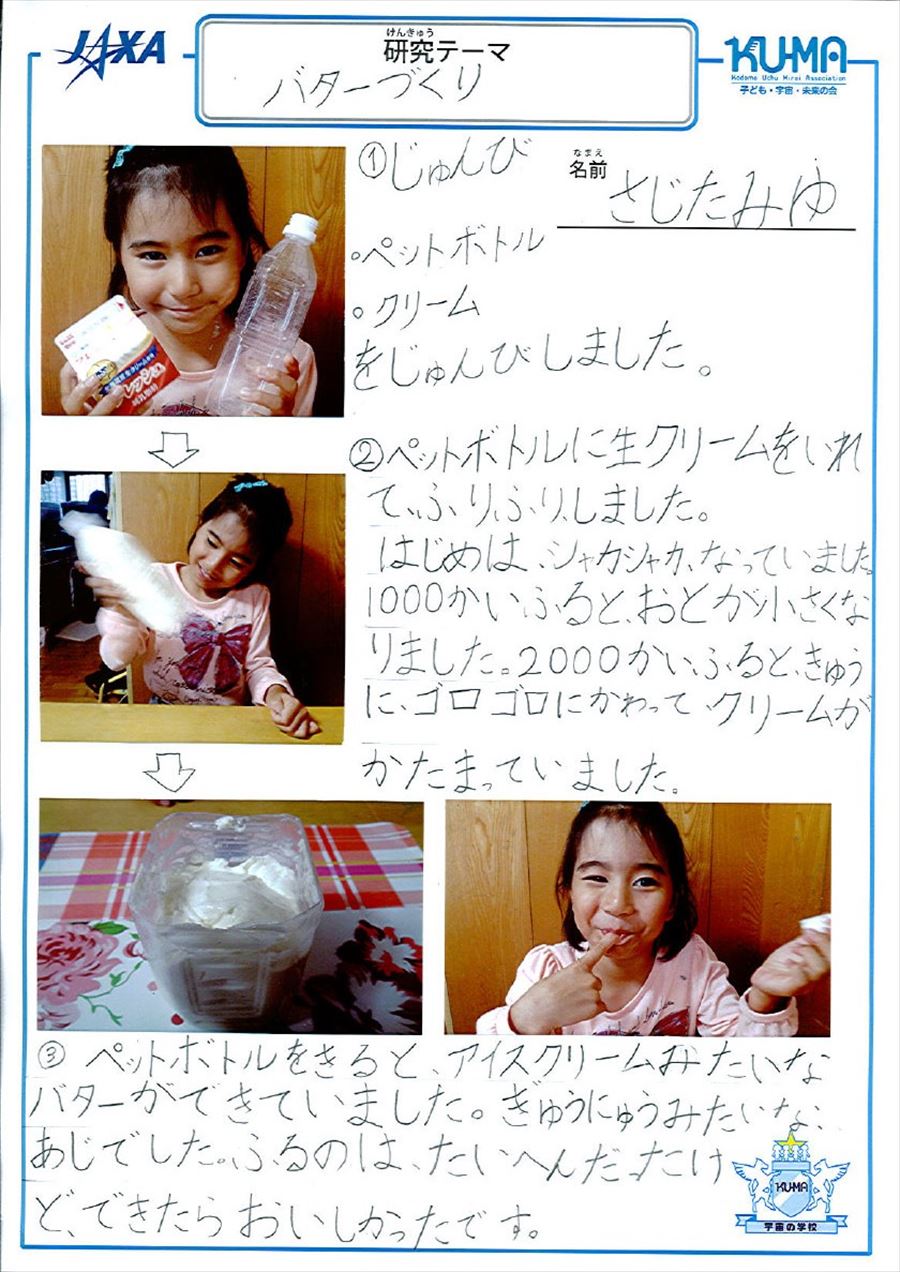 JAXA
けんきゅう
研究テーマ
バターづくり
KU-MA
Kodomo Uchu Mirai Association
子ども・宇宙・未来の会
なまえ
名前
さじたみゆ
①じゅんび
・ペットボトル
・クリーム
をじゅんびしました。
②ペットボトルに生クリームをいれ
て、ふりふりしました。
はじめは、シャカシャカ、なっていました。
1000かいふると、おとが小さくな
りました。2000かいふると、きゅう
に、ゴロゴロにかわって、クリームが
かたまっていました。
③ペットボトルをきると、アイスクリームみたいな
バターができていました。ぎゅうにゅうみたいな、
あじでした。ふるのは、たいへんだったけ
ど、できたらおいしかったです。
KU-MA
宇宙の学校